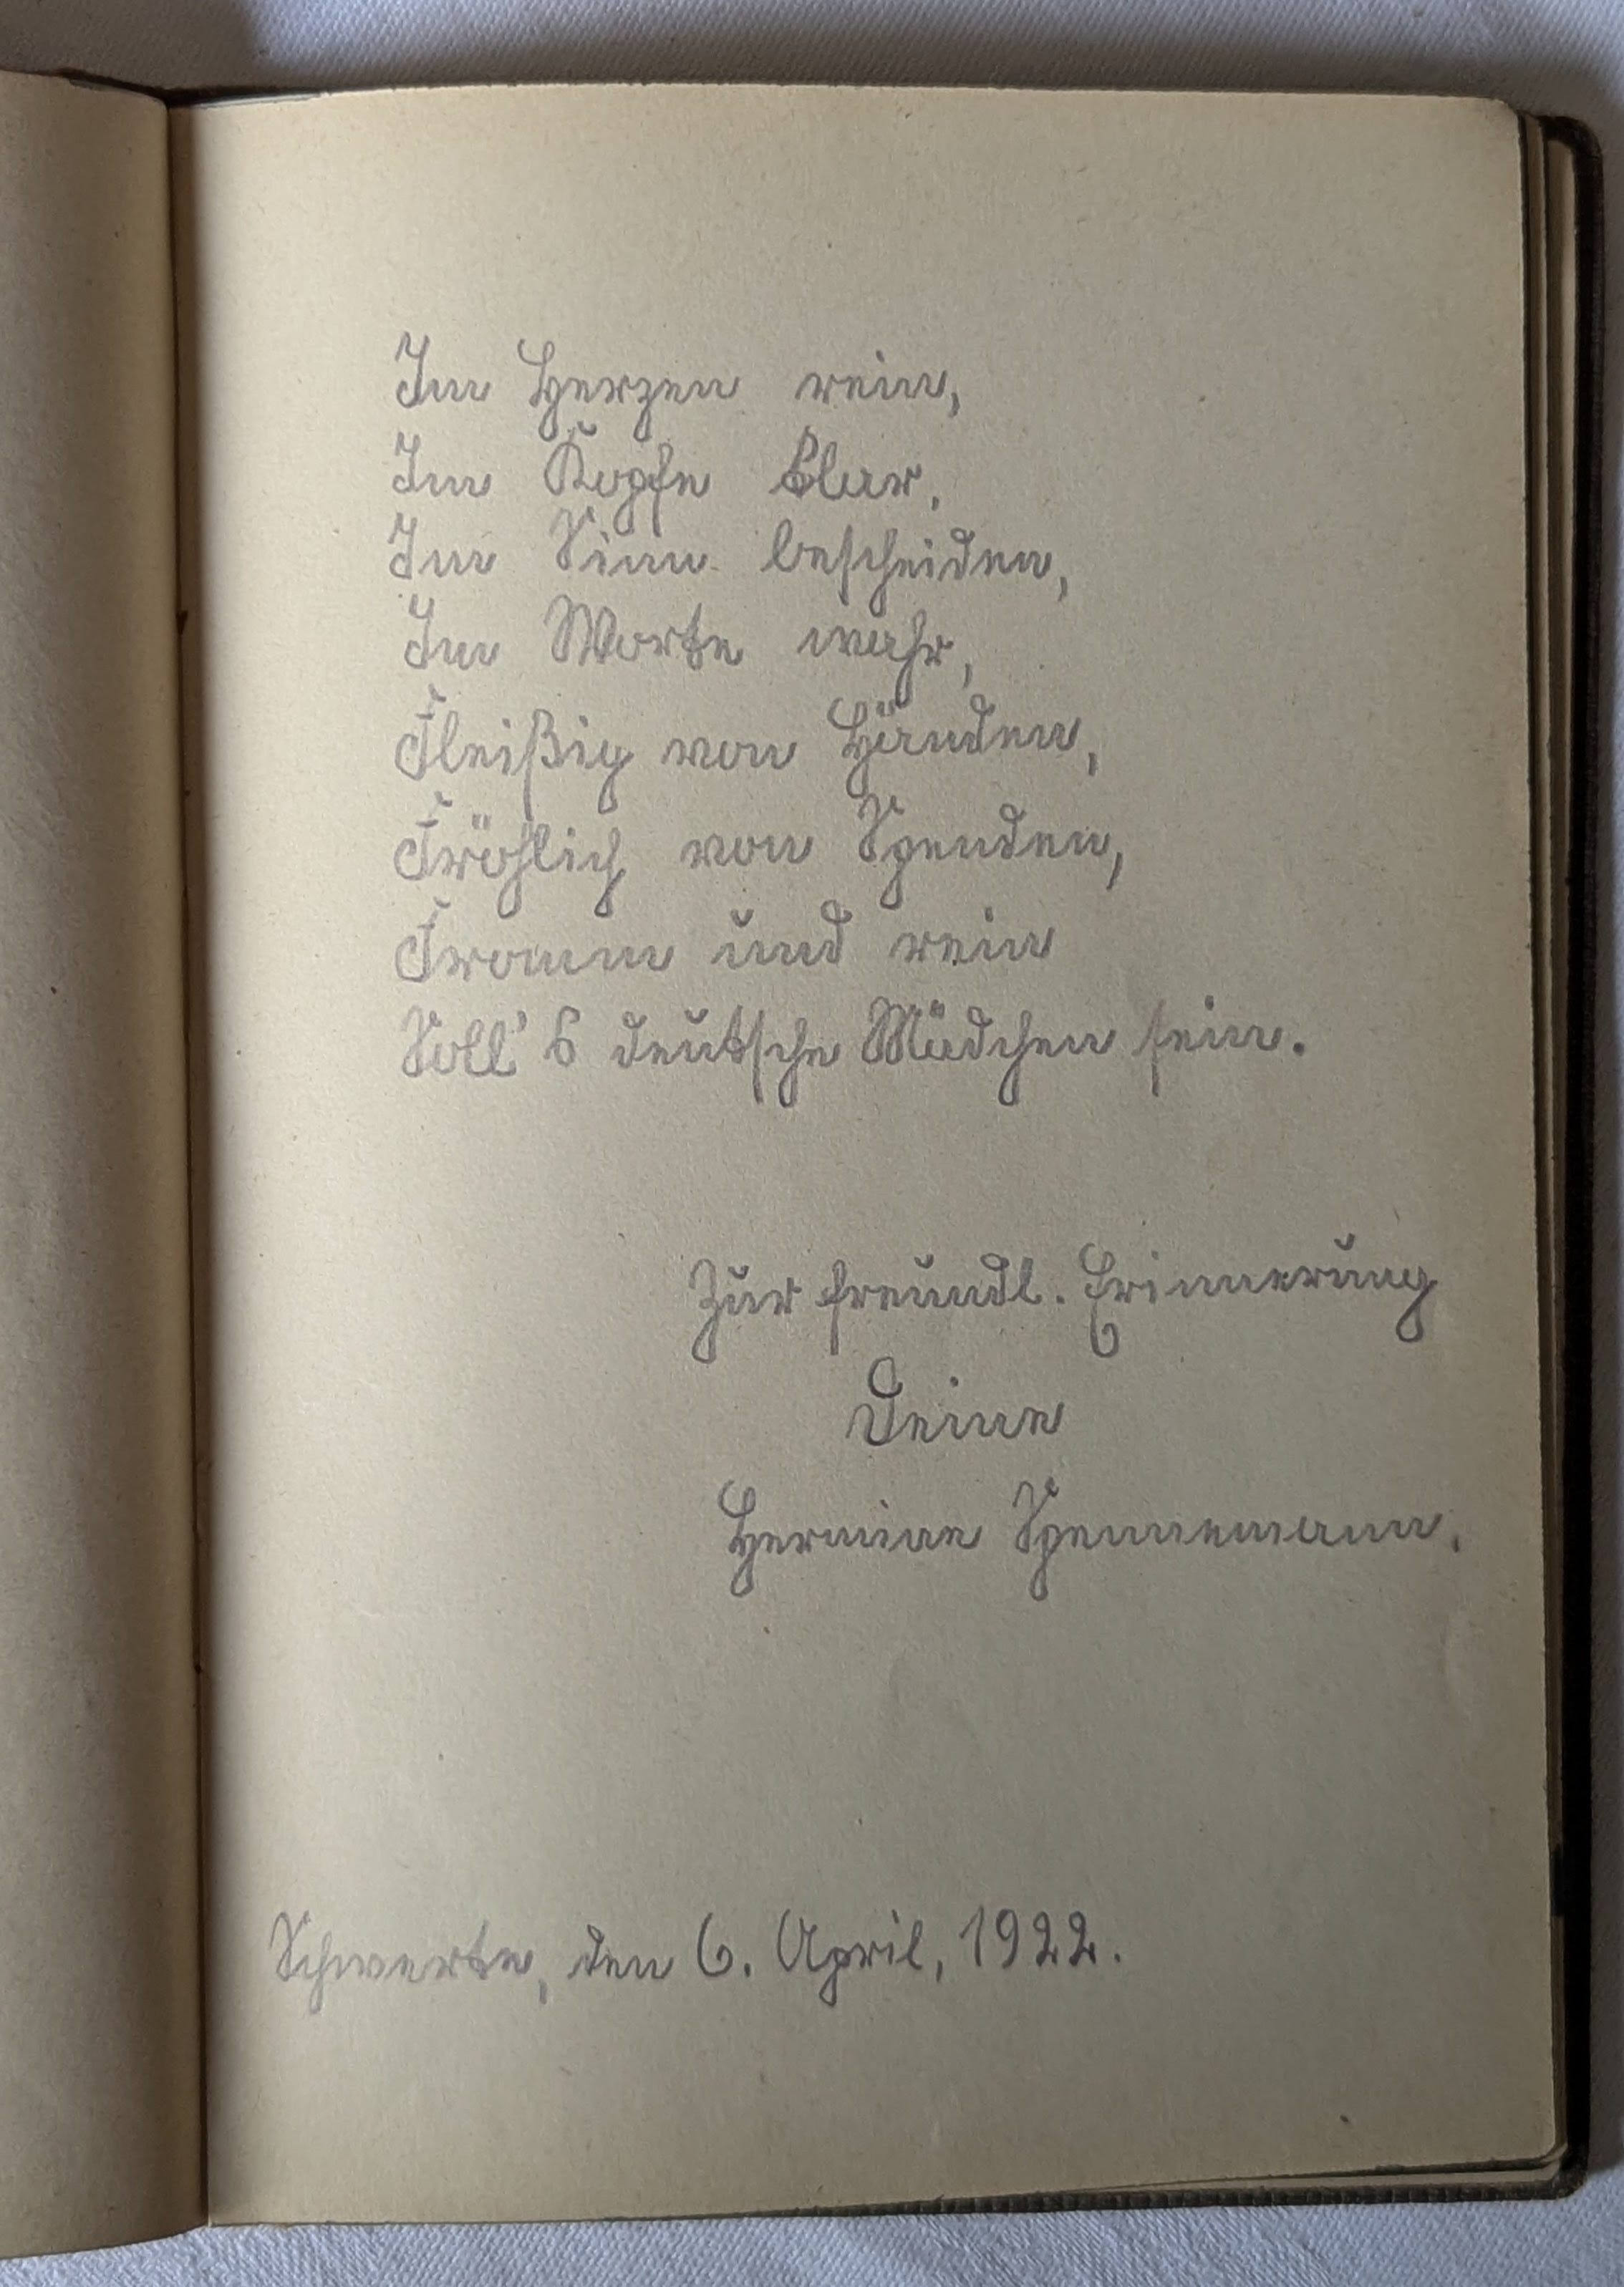 Im Herzen rein,
Im Kopfe klar,
Im Sinn bescheiden,
Im Worte wahr,
Fleißig von Händen,
Fröhlich von Spenden,
Fromm und rein
Soll's deutsche Mädchen sein.
Zur freundl. Erinnerung
Deine
Hermine Spennemann.
Schwerte, den 6. April, 1922.